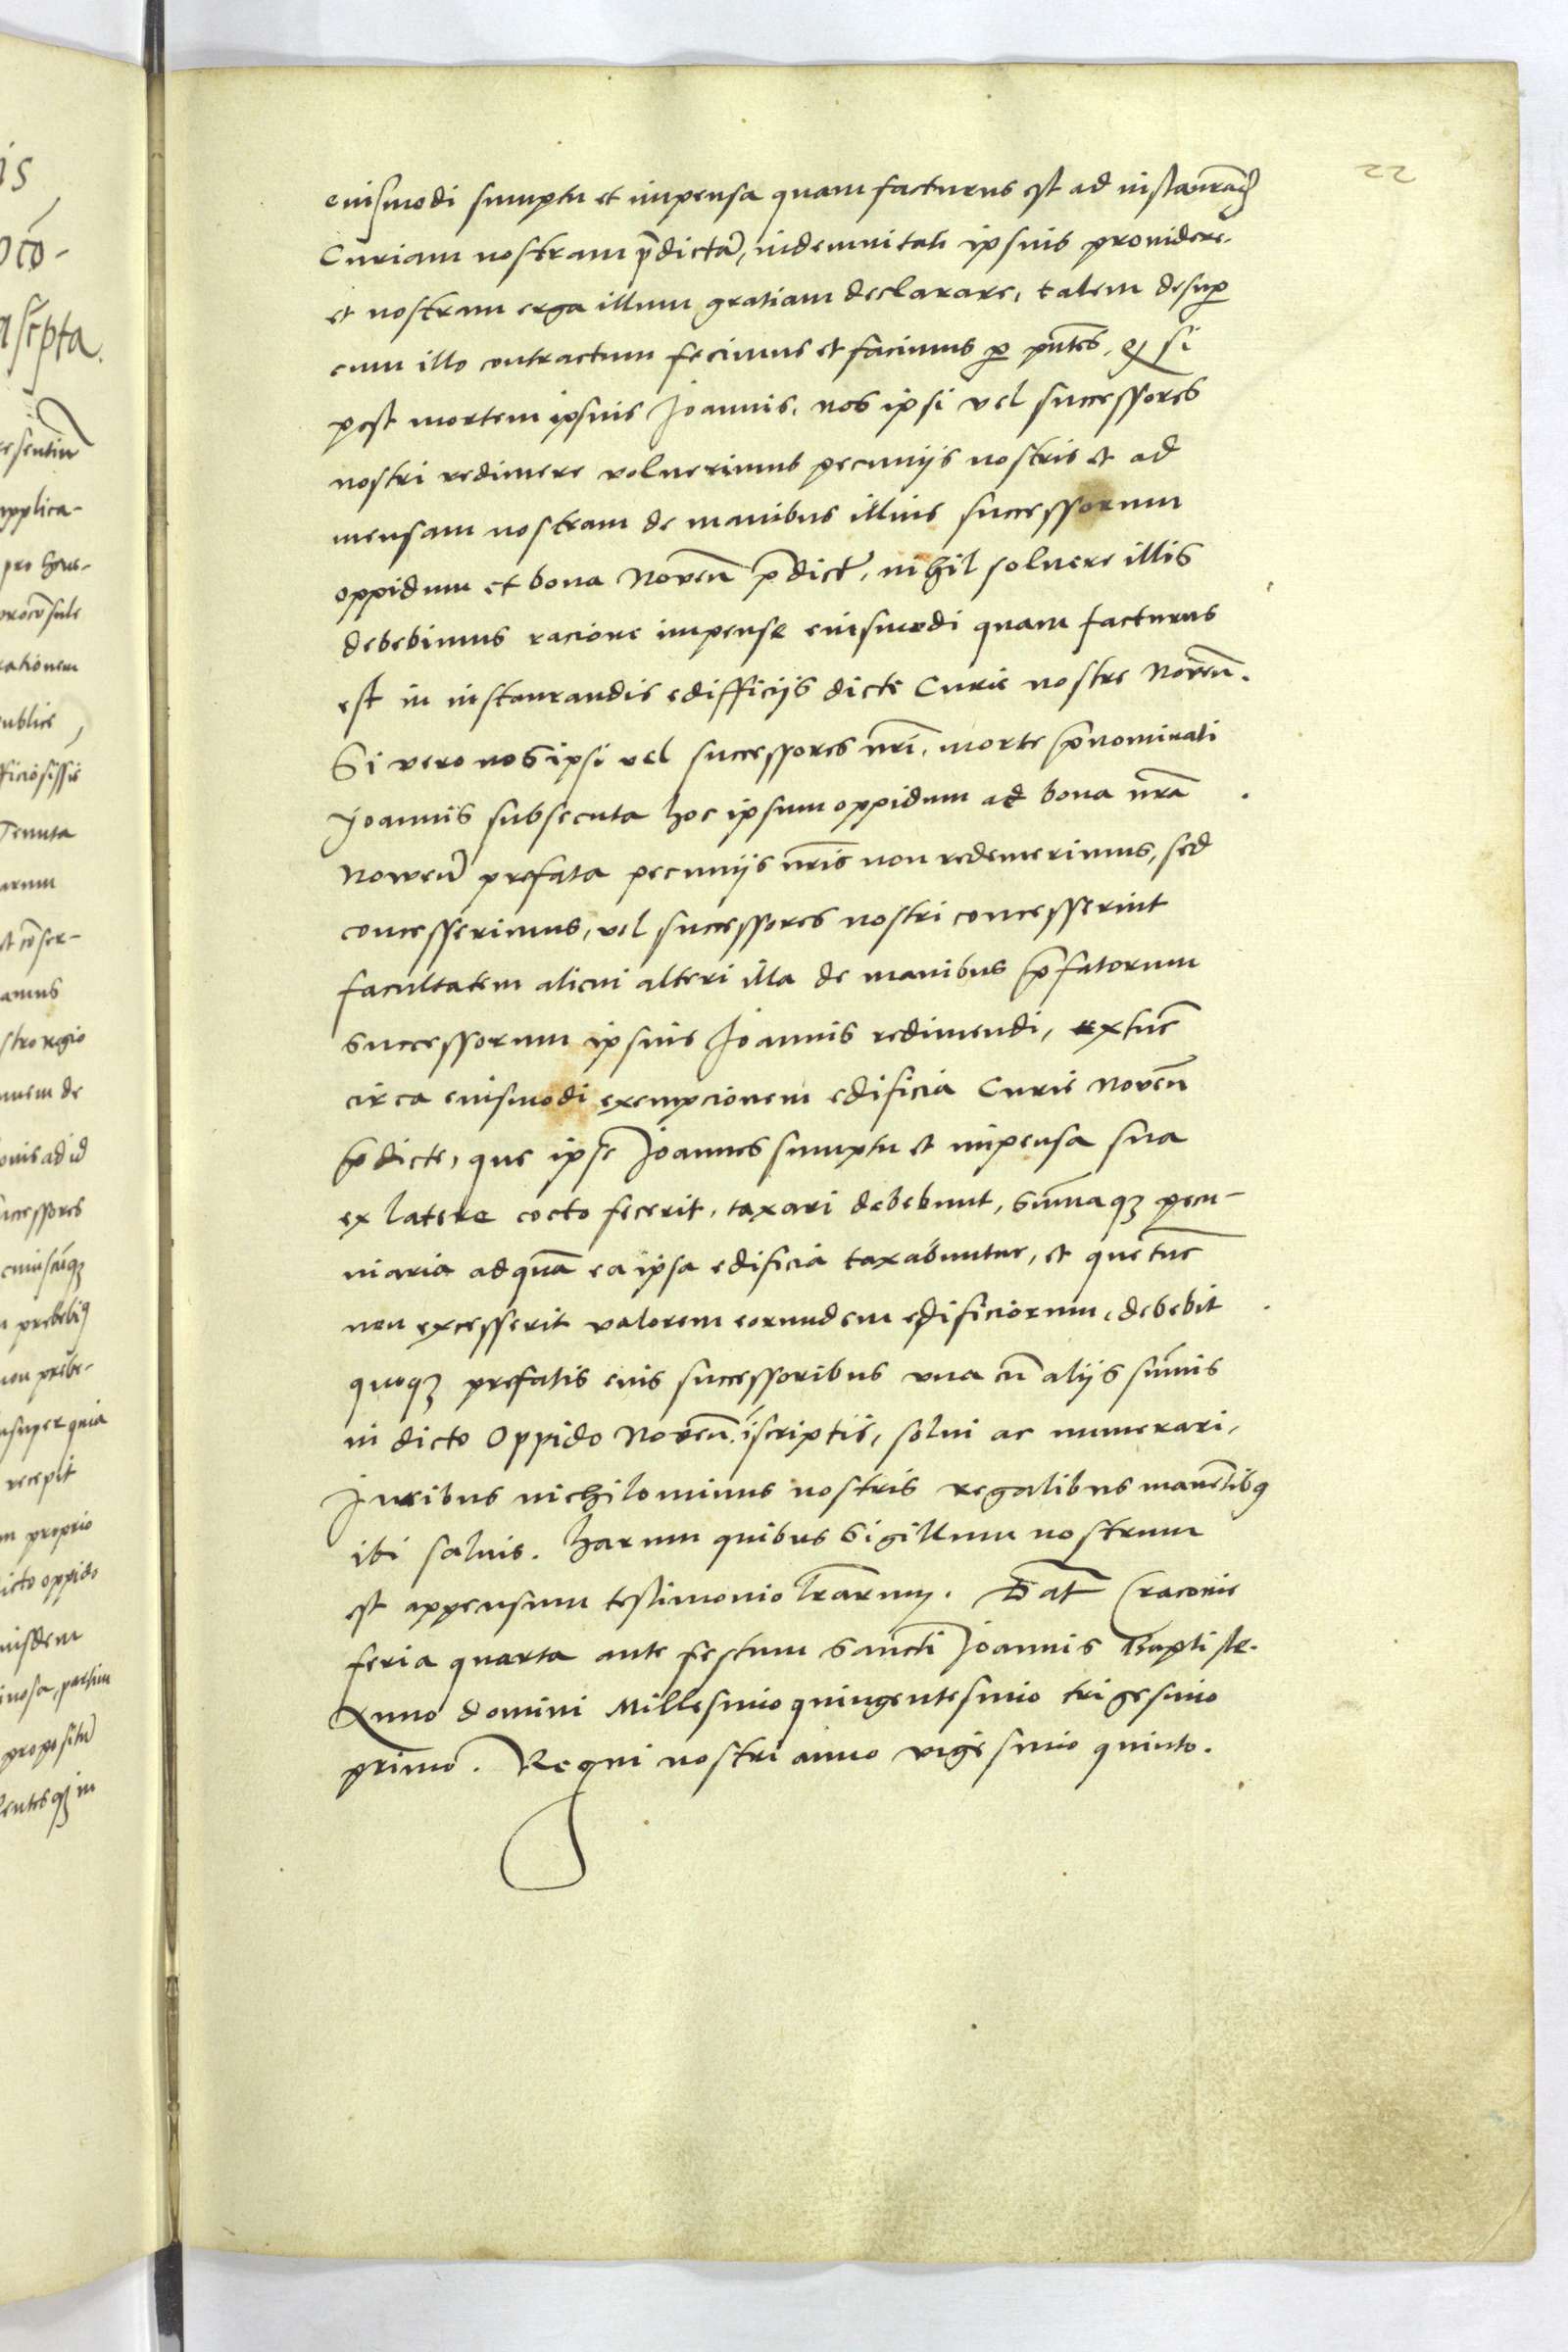 22
eiusmodi sumptu et impensa quam facturus est ad instaurand
Curiam nostram p̄dictā, indemnitati ipsius prouidere.
et nostram erga illum gratiam declarare, talem desup
cum illo contractum fecimus et facimus p pn̄tes, q si
post mortem ipsius Joannis, nos ipsi vel successores
nostri redimere voluerimus pecuniis nostris et ad
mensam nostram de manibus illius successorum
oppidum et bona Noven̄ p̄dict, nihil soluere illis
debebimus racione impense eiusmodi quam facturus
est in instaurandis edifficiis dicte Curie nostre Noven̄.
Si vero nos ipsi vel successores nr̄i, morte p̄nominati
Joannis subsecuta hoc ipsum oppidum ad bona nr̄a
Nowen̄ prefata pecuniis nr̄is non redemerimus, sed
concesserimus, vel successores nostri concesserint
facultatem alicui alteri illa de manibus p̄fatorum
successorum ipsius Joannis redimendi, extūc
circa eiusmodi exempcionem edificia Curie Noven̄
p̄dicte, que ipse Joannes sumptu et impensa sua
ex latere cocto fecerit, taxari debebunt, Sum̄aqʒ pecu-
niaria ad quā ea ipsa edificia taxabuntur, et que tūc
non excesserit valorem eorundem edificiorum, debebit
quoqʒ prefatis eius successoribus vna cū aliis sum̄is
in dicto Oppido Noven̄. īscriptis, solui ac numerari,
Juribus nichilominus nostris regalibus manētibꝰ
ibi saluis. Harum quibus Sigillum nostrum
est appensum testimonio lr̄arum. Dat̄ Cracouie
feria quarta ante festum Sancti Joannis Baptiste.
Anno domini Millesimo quingentesimo trigesimo
primo. Regni nostri anno vigesimo quinto.